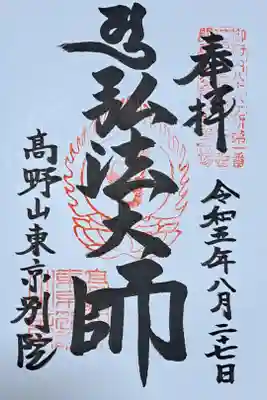 奉拝
令和五年八月二十七日
弘法大師
高野山東京別院